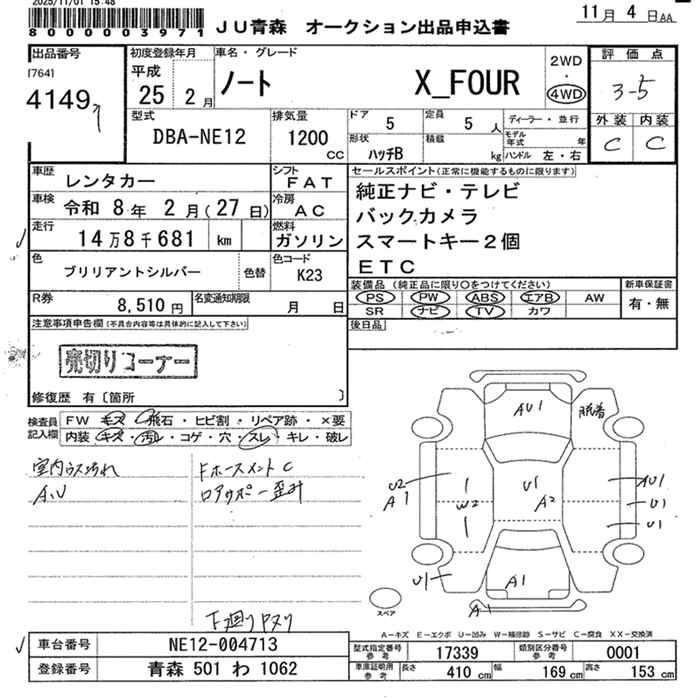 2025/11/01 15:48
8000003971
JU青森 オークション出品申込書
11月 4日 AA
出品番号
[764]
4149
初度登録年月
平成
25 2月
車名・グレード
ノート X_FOUR
2WD
・
4WD
評価点
3-5
外装 内装
C C
型式
DBA-NE12
排気量
1200
CC
ドア
5
定員
5 人
形状
ハッチB
積載
kg
ディーラー・並行
モデル年式 年
ハンドル 左・右
車歴 レンタカー
シフト
FAT
車検 令和 8年 2月(27日)
冷房
AC
走行 14万8千681 km
燃料
ガソリン
色
ブリリアントシルバー
色替
色コード
K23
R券 8,510円
名変通知期限 月 日
セールスポイント(正常に機能するものに限ります)
純正ナビ・テレビ
バックカメラ
スマートキー2個
ETC
装備品(純正品に限り○をつけてください)
PS PW ABS エアB AW
SR ナビ TV カワ
新車保証書
有・無
後日品
注意事項申告欄(不具合内容等は具体的に記入して下さい)
売切りコーナー
修復歴 有〔箇所 〕
検査員
記入欄
FW キズ・飛石・ヒビ割・リペア跡・×要
内装・キズ・汚れ・コゲ・穴・スレ・キレ・破レ
室内ウス汚れ
A.U
Fホースメント C
ロアサポー歪み
下廻りサスリ
AU1
脱着
U2
A1
W2
U1
A2
AU1
U1
U1
U1
A1
A1
スペア
A-キズ E-エクボ U-凹み W-補修跡 S-サビ C-腐食 XX-交換済
車台番号 NE12-004713
登録番号 青森 501 わ 1062
型式指定番号
参考
17339
類別区分番号
参考
0001
車庫証明用
参考
長さ 410 cm 幅 169 cm 高さ 153 cm